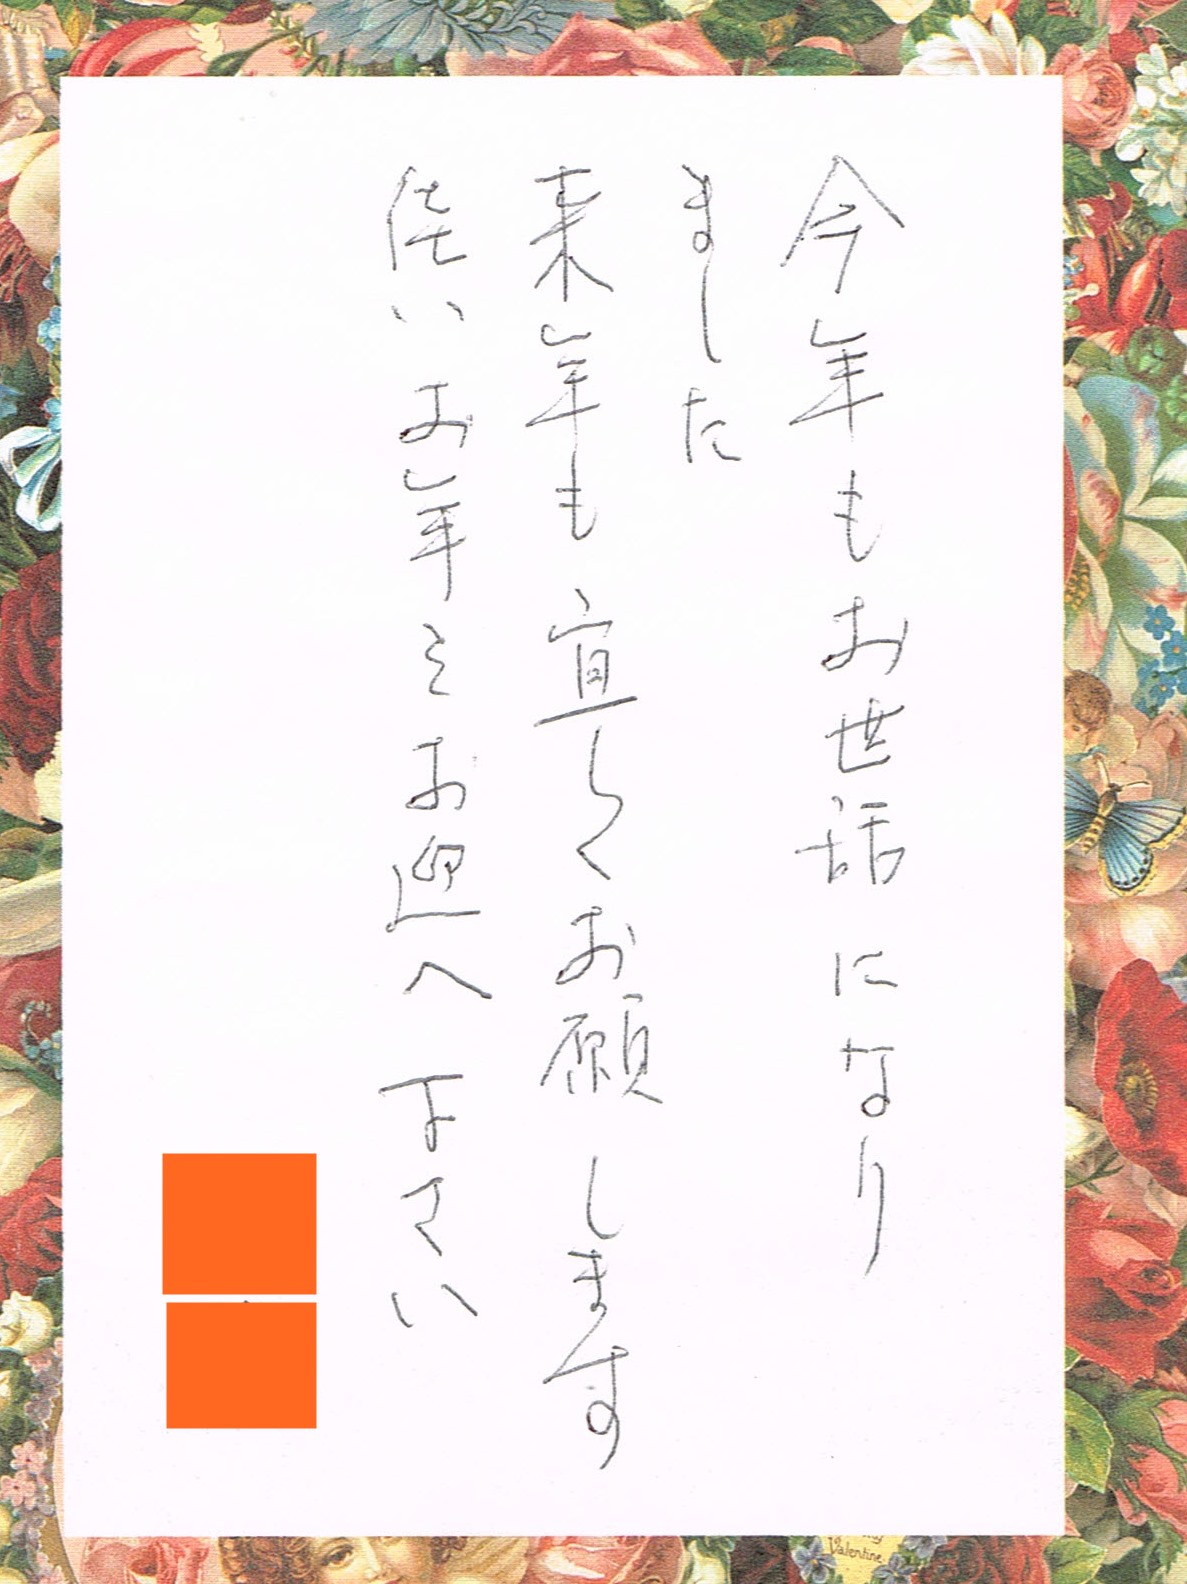 今年もお世話になり
ました
来年も宜しくお願します
佳いお年をお迎へ下さい
Valentine